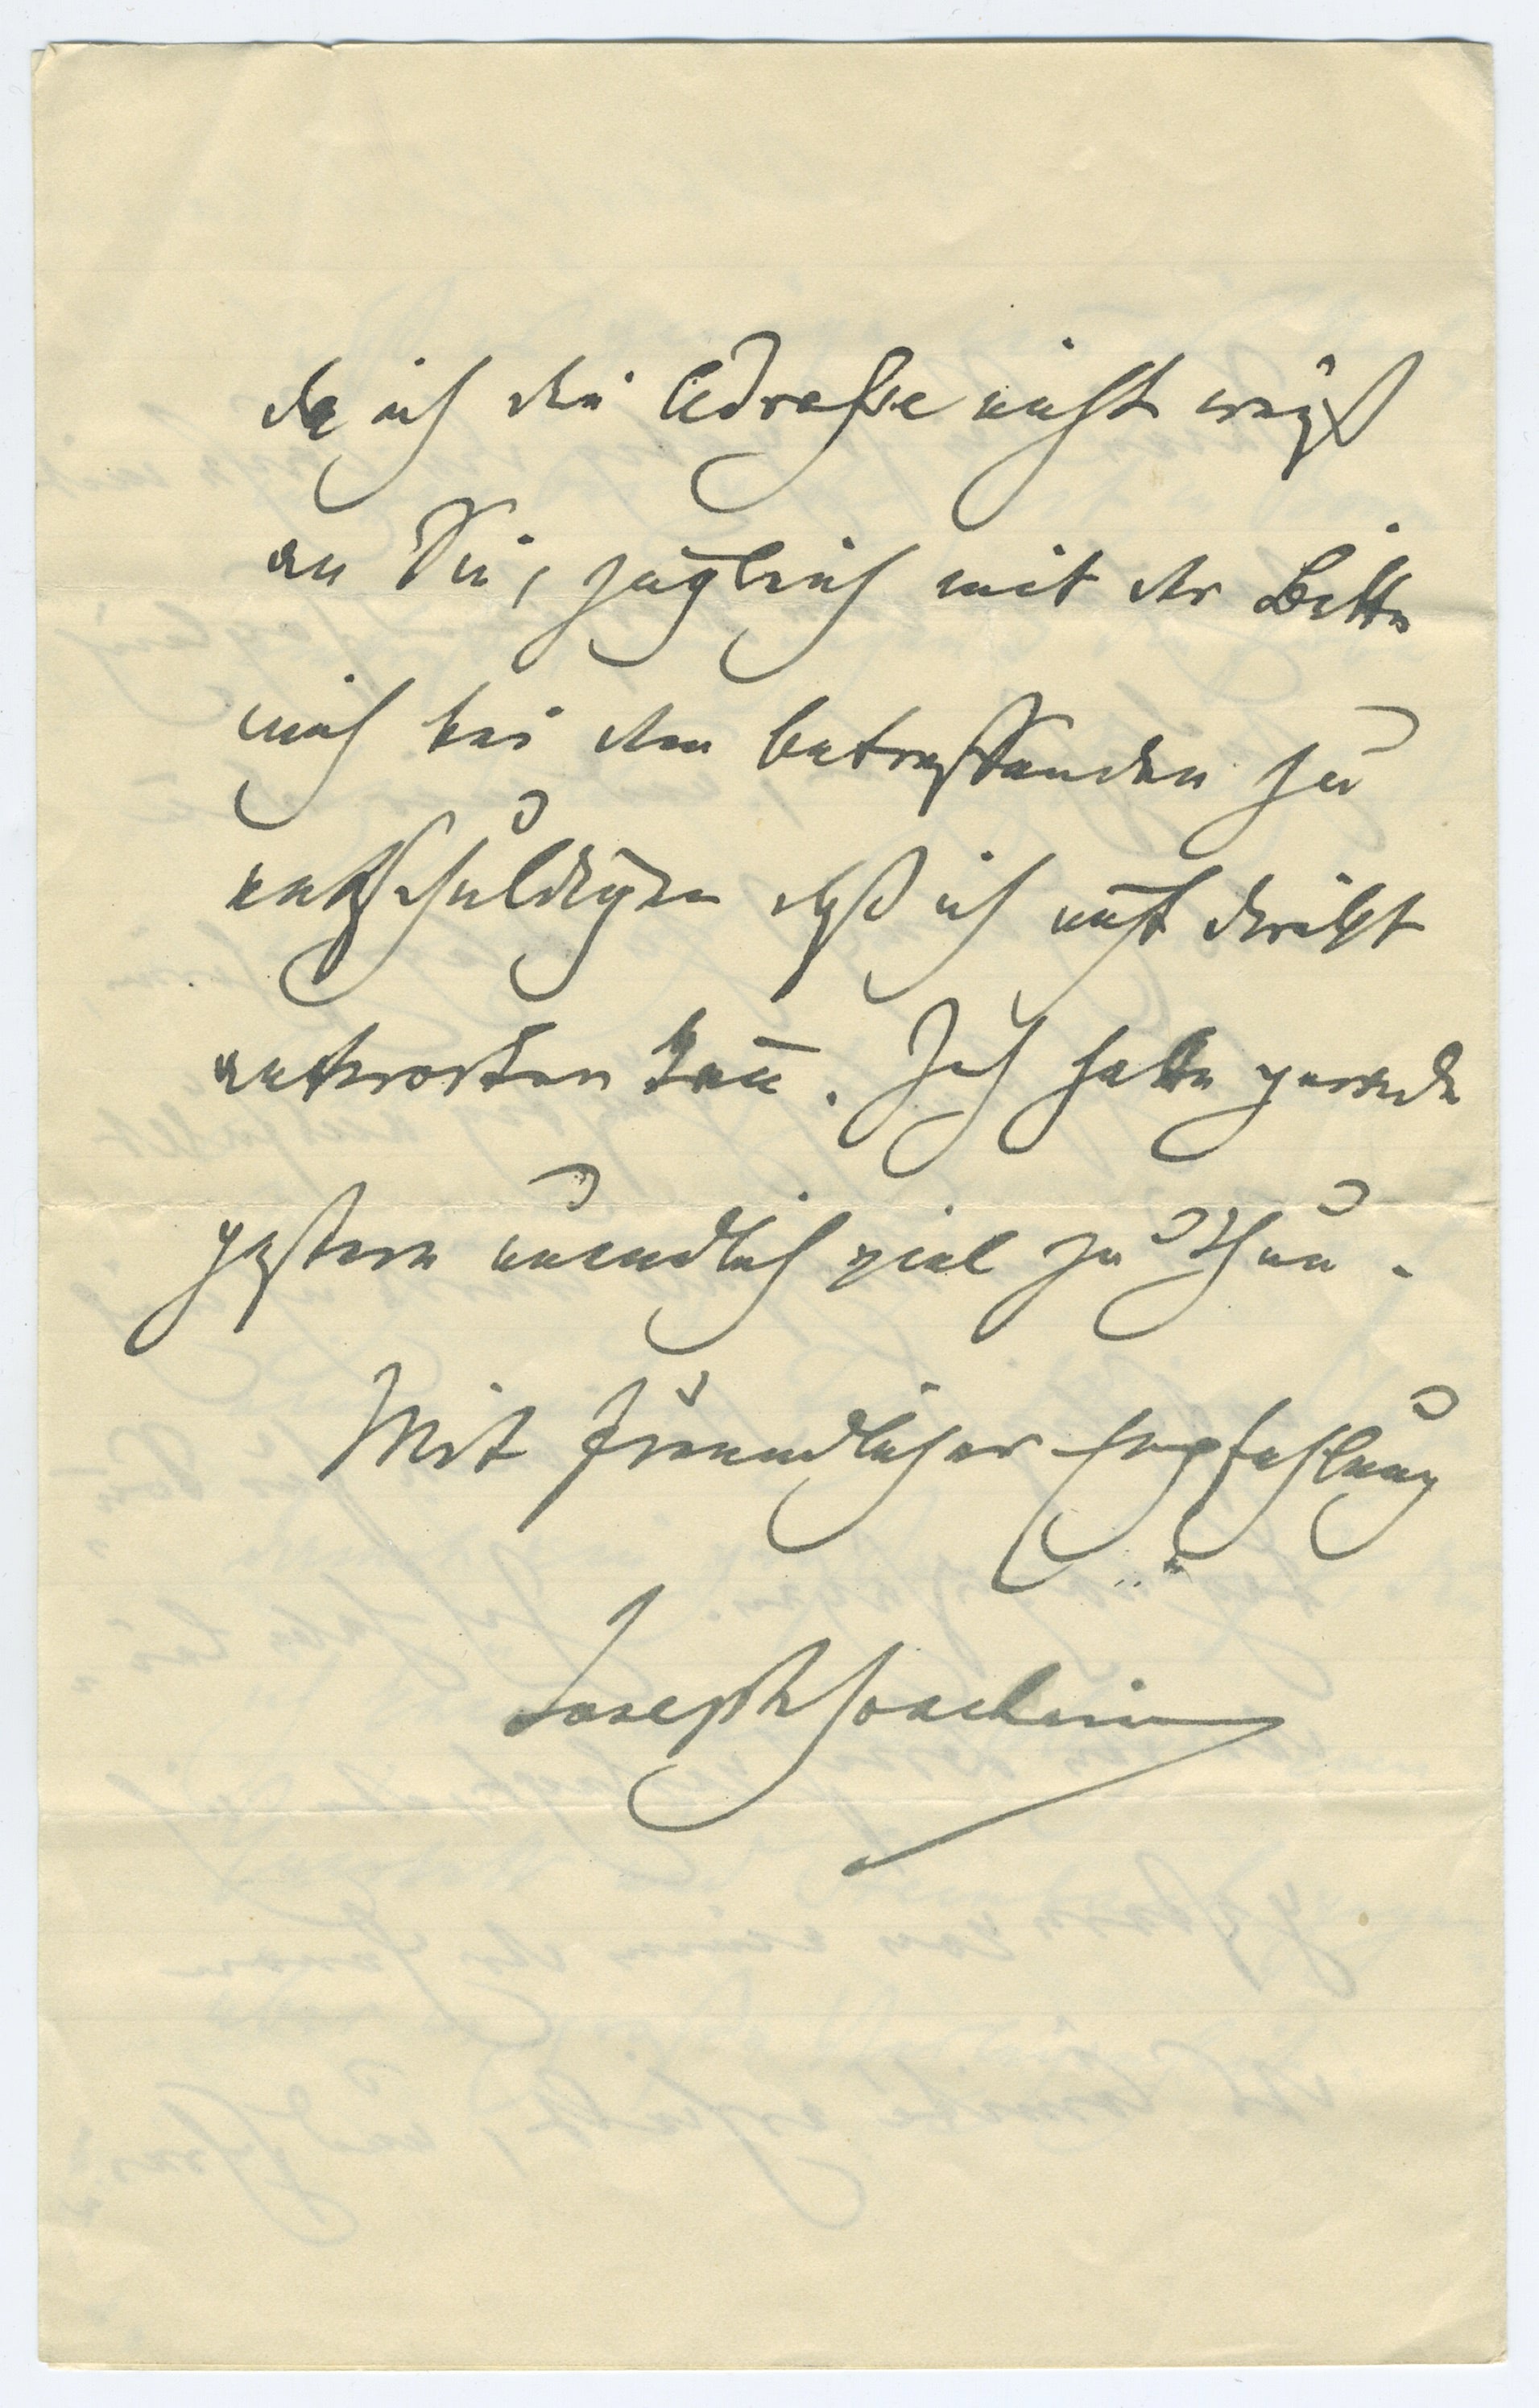 da ich die Adresse nicht weiß
an Sie, zugleich mit der Bitte
mich bei dem betreffenden zu
entschuldigen daß ich nicht direkt
antworten kann. Ich hatte gerade
gestern unendlich viel zu thun.
Mit freundlicher Empfehlung
Joseph Joachim